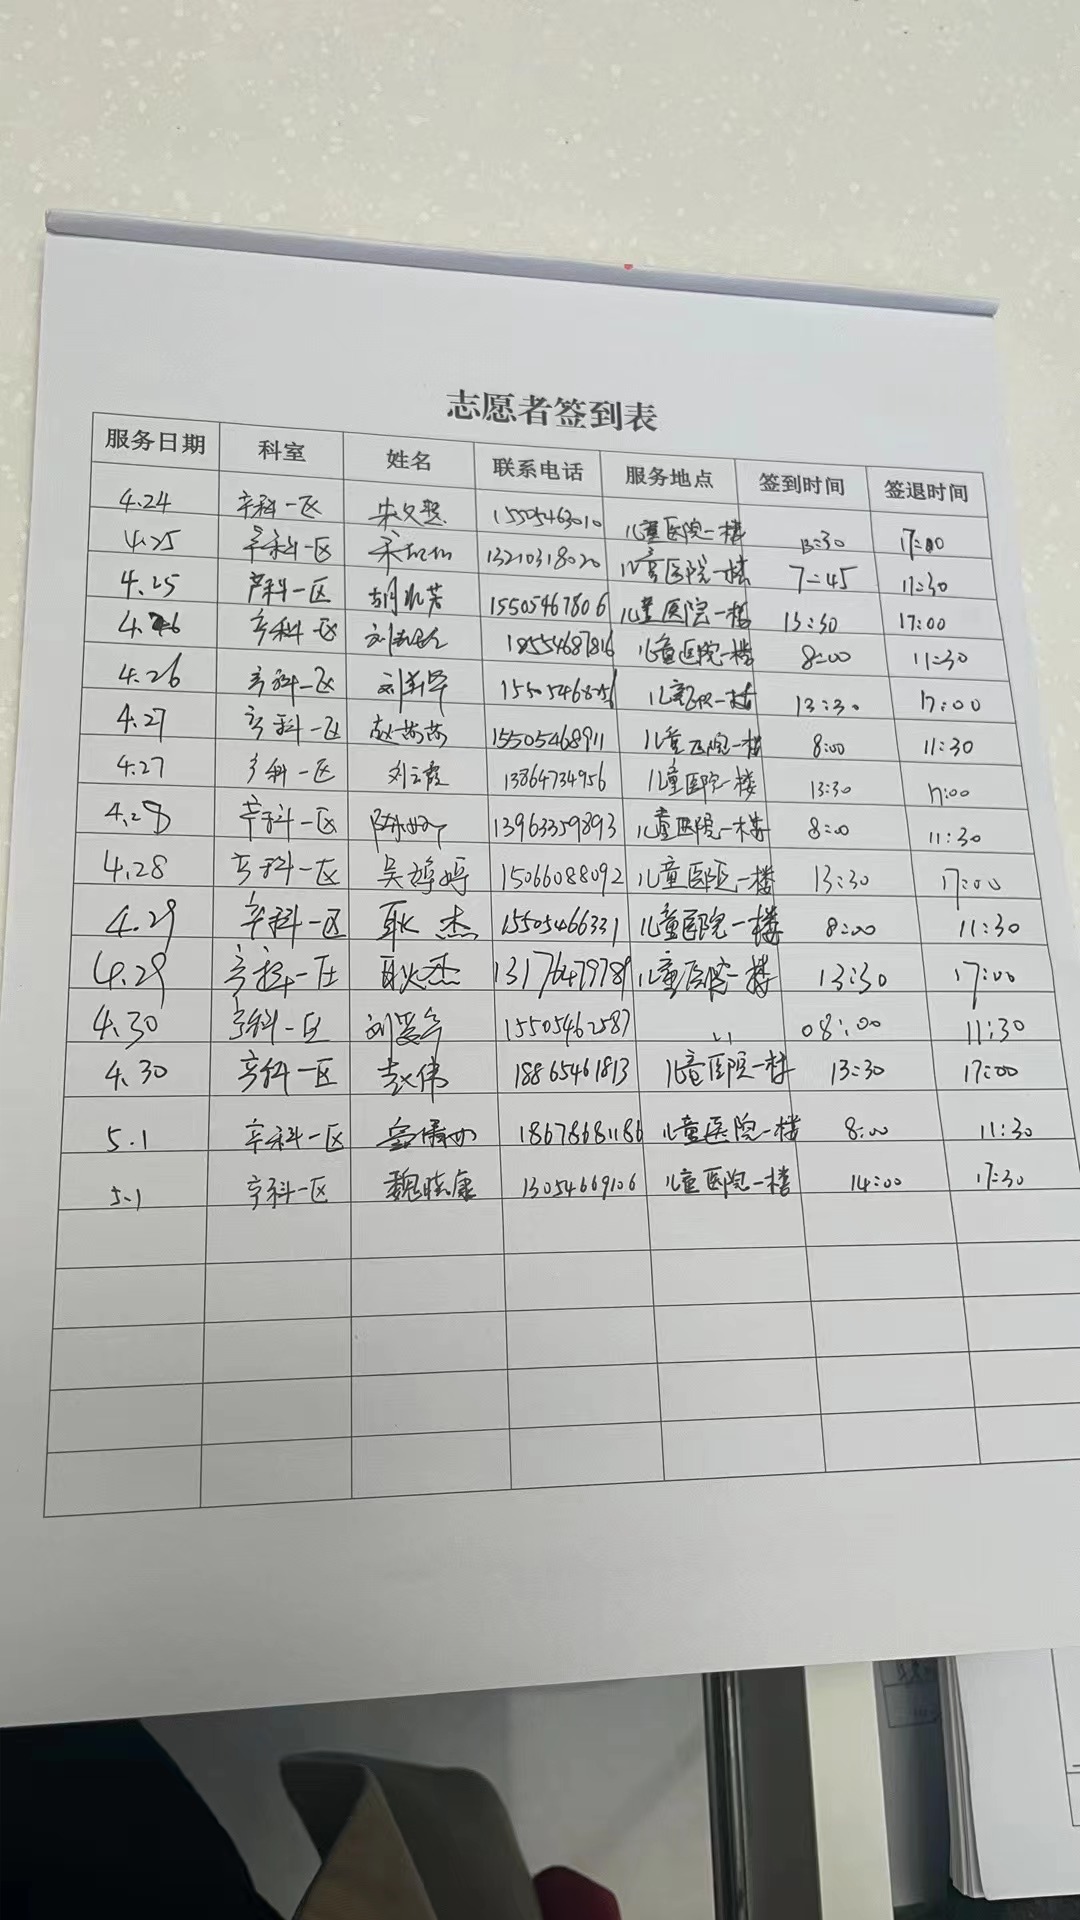 志愿者签到表
服务日期 科室 姓名 联系电话 服务地点 签到时间 签退时间
4.24 产科一区 15505463010 儿童医院一楼 13:30 17:00
4.25 产科一区 13210318020 儿童医院一楼 7:45 11:30
4.25 产科一区 15505467806 儿童医院一楼 13:30 17:00
4.26 产科一区 18554687816 儿童医院一楼 8:00 11:30
4.26 产科一区 儿童医院一楼 13:30 17:00
4.27 产科一区 赵芳芳 15505468911 儿童医院一楼 8:00 11:30
4.27 产科一区 刘云霞 13864734956 儿童医院一楼 13:30 17:00
4.28 产科一区 13963359893 儿童医院一楼 8:00 11:30
4.28 产科一区 吴婷婷 15066088092 儿童医院一楼 13:30 17:00
4.29 产科一区 耿杰 15505466331 儿童医院一楼 8:00 11:30
4.29 产科一区 耿杰 儿童医院一楼 13:30 17:00
4.30 产科一区 15505462587 08:00 11:30
4.30 产科一区 赵伟 18865461813 儿童医院一楼 13:30 17:00
5.1 产科一区 18678681186 儿童医院一楼 8:00 11:30
5.1 产科一区 魏晓康 13054669106 儿童医院一楼 14:00 17:30